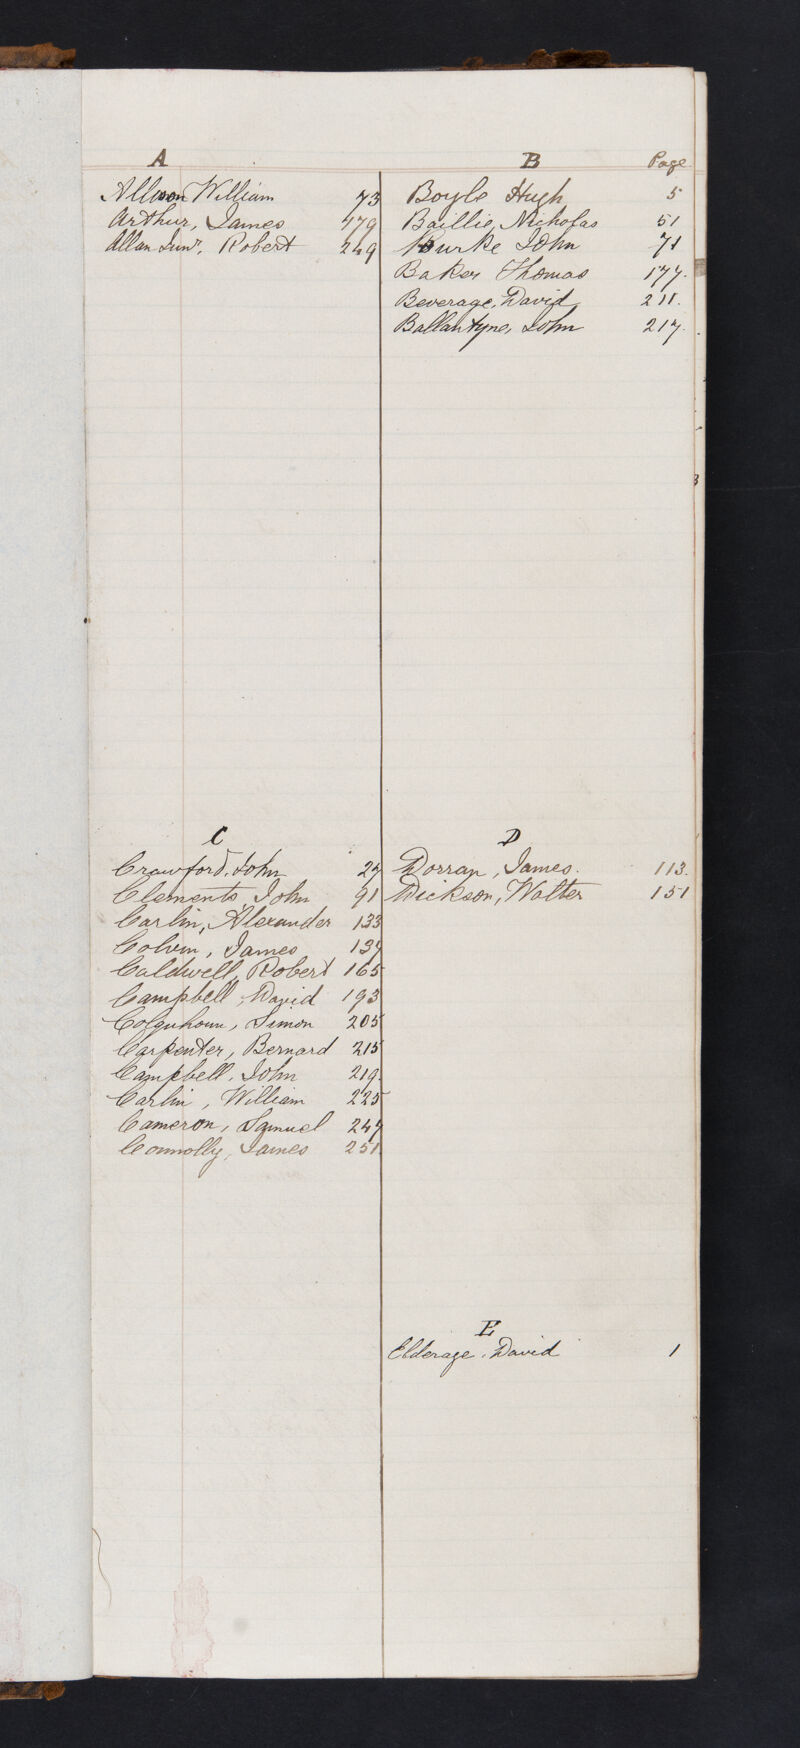 A
Allison William 73
Arthur, James 179
Allan Junr, Robert 249
B Page
Boyle Hugh 5
Baillie, Nicholas 51
Burke John 71
Baker Thomas 177.
Beverage, David 211.
Ballantyne, John 217.
C
Crawford, John 27
Clements, John 91
Carlin, Alexander 133
Colvin, James 137
Caldwell, Robert 165
Campbell, David 193
Colquhoun, Simon 205
Carpenter, Bernard 215
Campbell, John 219.
Carlin, William 225
Cameron, Samuel 247
Connolly, James 251
D
Dorran, James. 113.
Dickson, Walter 151
E
Elderage, David 1